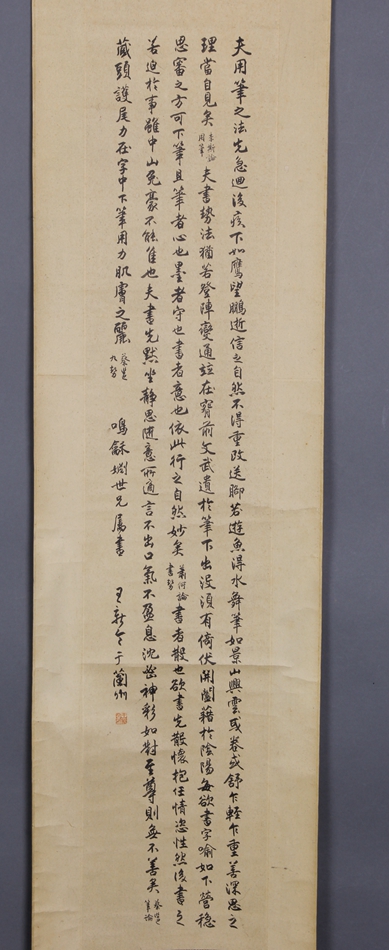 夫用筆之法先急迴後疾下如鷹望鵬逝信之自然不得重改送腳若遊魚得水舞筆如景山興雲或卷或舒乍輕乍重善深思之
理當自見矣李斯論用筆夫書勢法猶若登陣變通並在腕前文武遺於筆下出沒須有倚伏開闔藉於陰陽每欲書字喻如下營穩
思審之方可下筆且筆者心也墨者守也書者意也依此行之自然妙矣蕭何論書勢書者散也欲書先散懷抱任情恣性然後書之
若迫於事雖中山兔豪不能佳也夫書先默坐靜思隨意所適言不出口氣不盈息沈密神彩如對至尊則無不善矣蔡邕筆論
藏頭護尾力在字中下筆用力肌膚之麗蔡邕九勢
鳴龢世兄屬書
王新令于蘭州